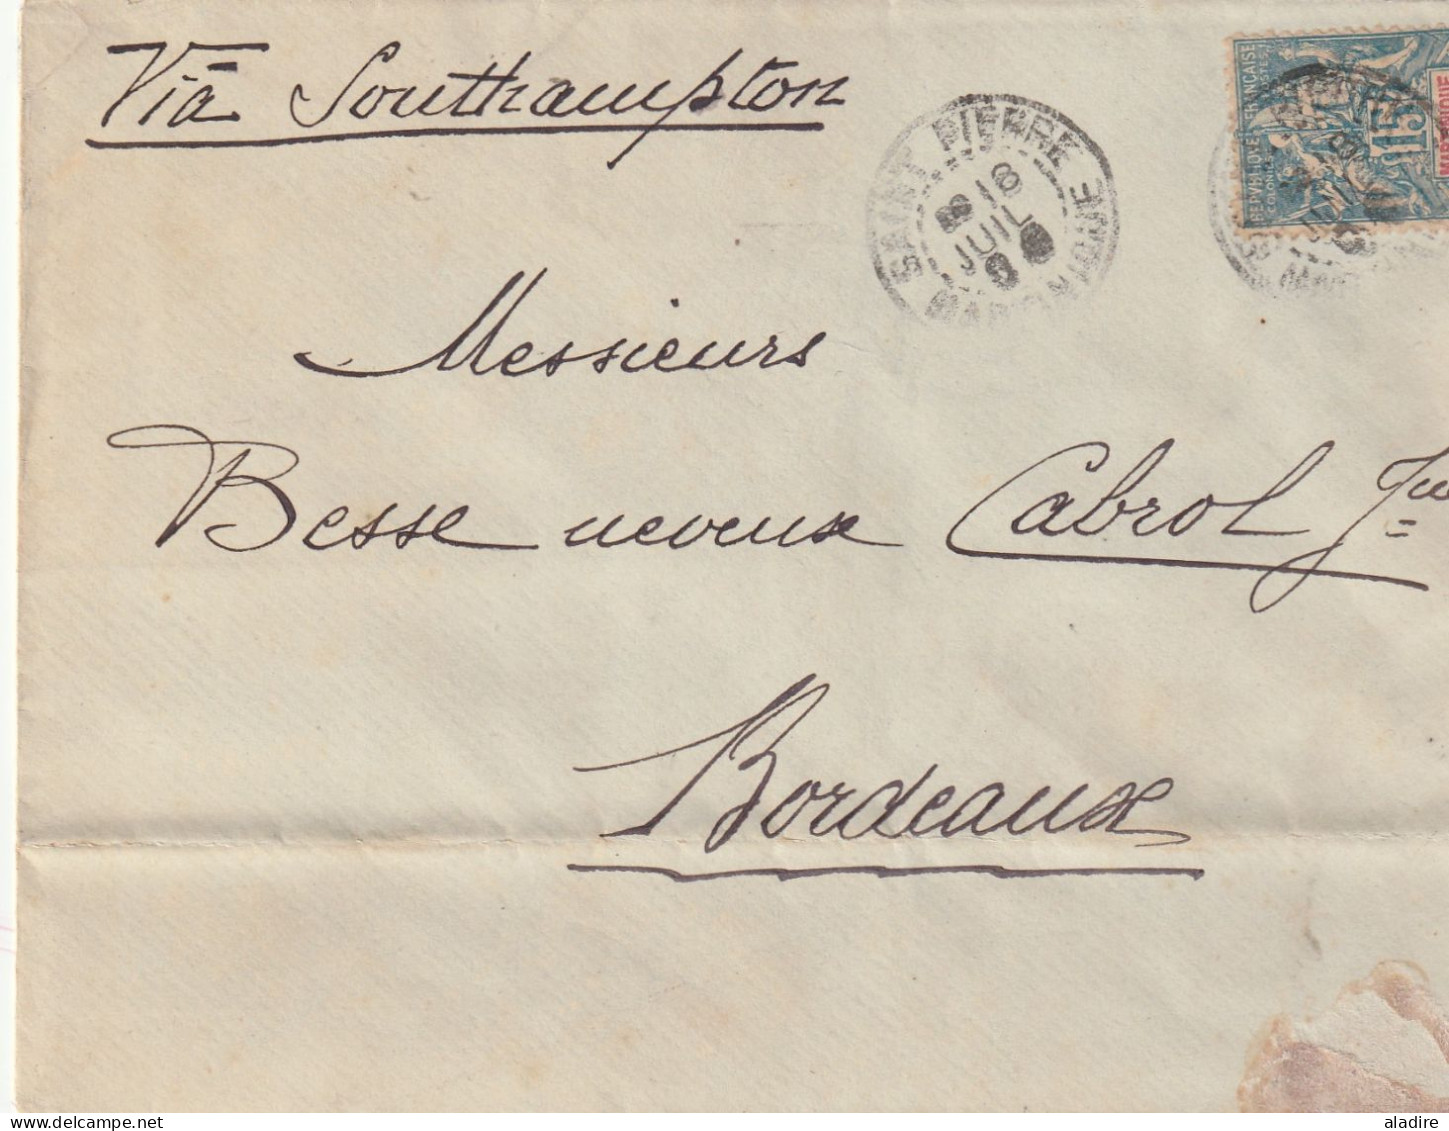 Viā Southampton
SAINT PIERRE
18
JUIL
MARTINIQUE
REPUBLIQUE FRANCAISE
COLONIES POSTES
15
MARTINIQUE
Messieurs
Besse neveux Cabrol Jne
Bordeaux
delcampe.net
aladire